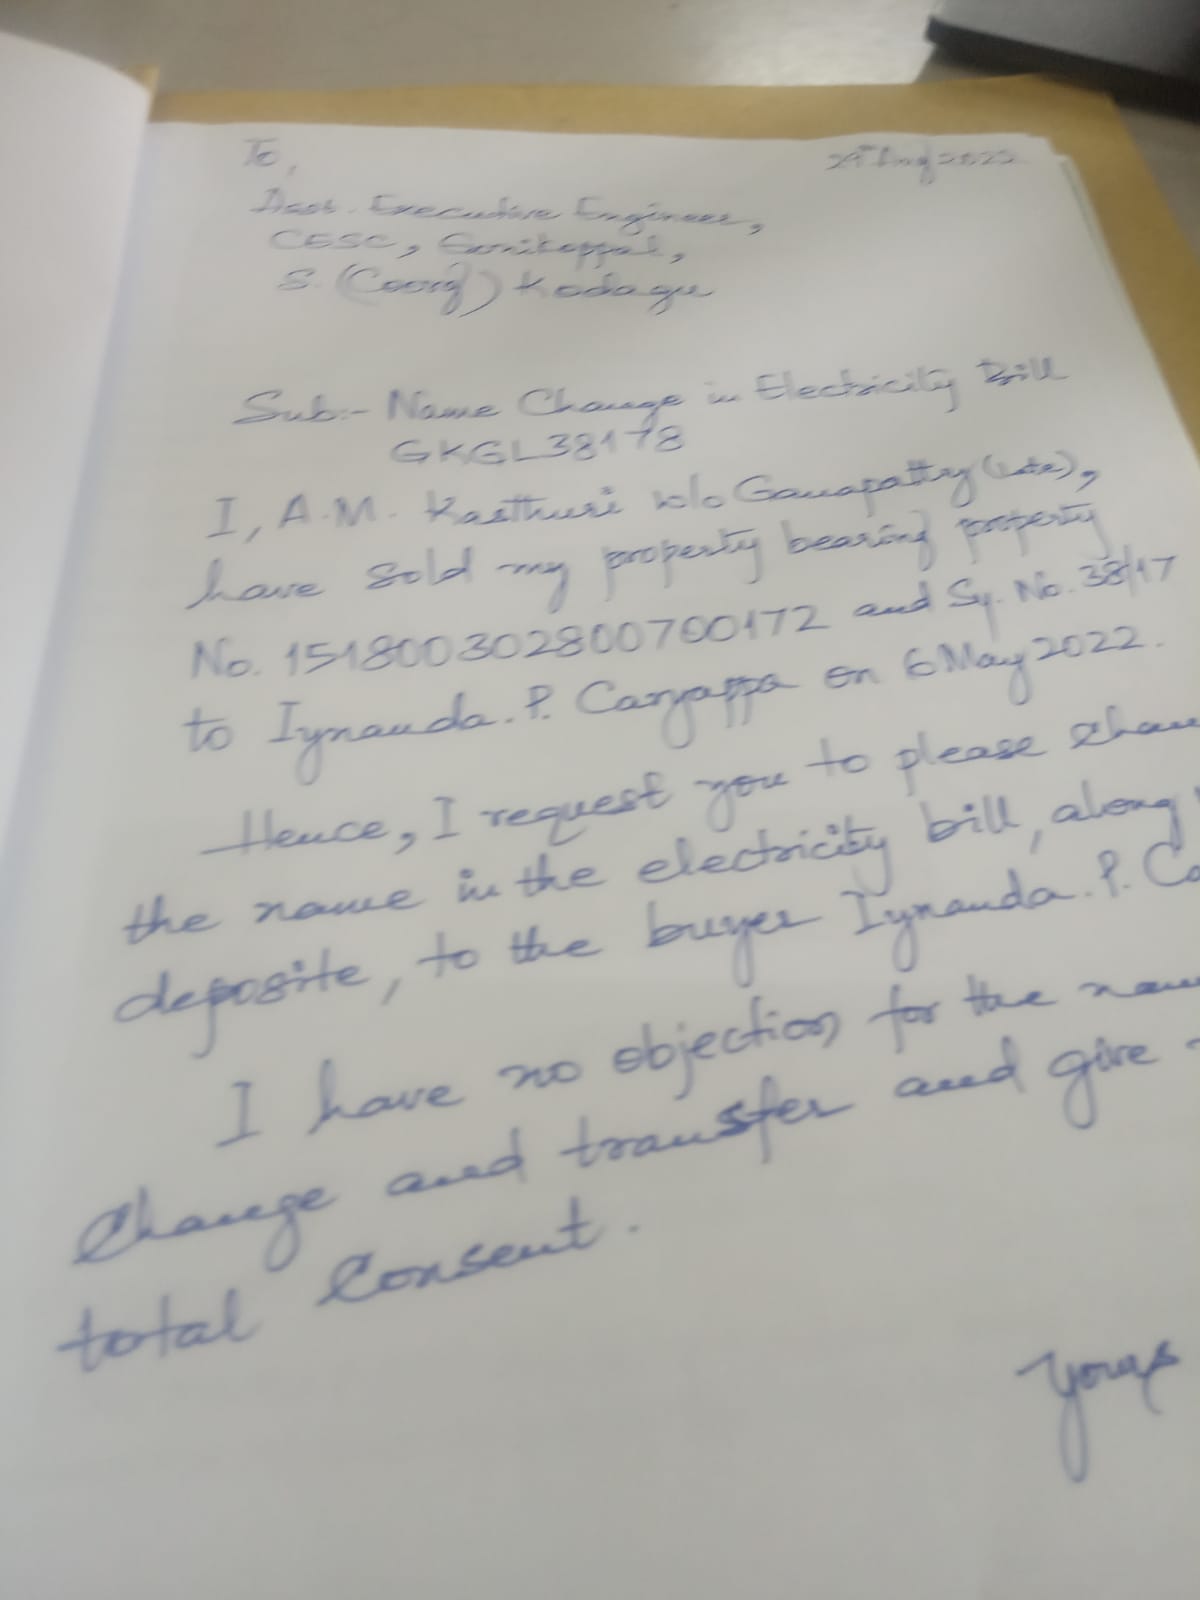 To,
29th Aug 2022
Asst. Executive Engineer,
CESC, Gonikoppal,
S. (Coorg) Kodagu
Sub:- Name Change in Electricity Bill
GKGL38178
I, A.M. Kasthuri w/o Ganapathy (Late),
have sold my property bearing property
No. 151800302800700172 and Sy. No. 38/17
to Iynanda. P. Cariappa on 6 May 2022.
Hence, I request you to please
the name in the electricity bill, along
deposite, to the buyer Iynanda. P.
I have no objection for the
Change and transfer and give
total Consent.
Yours